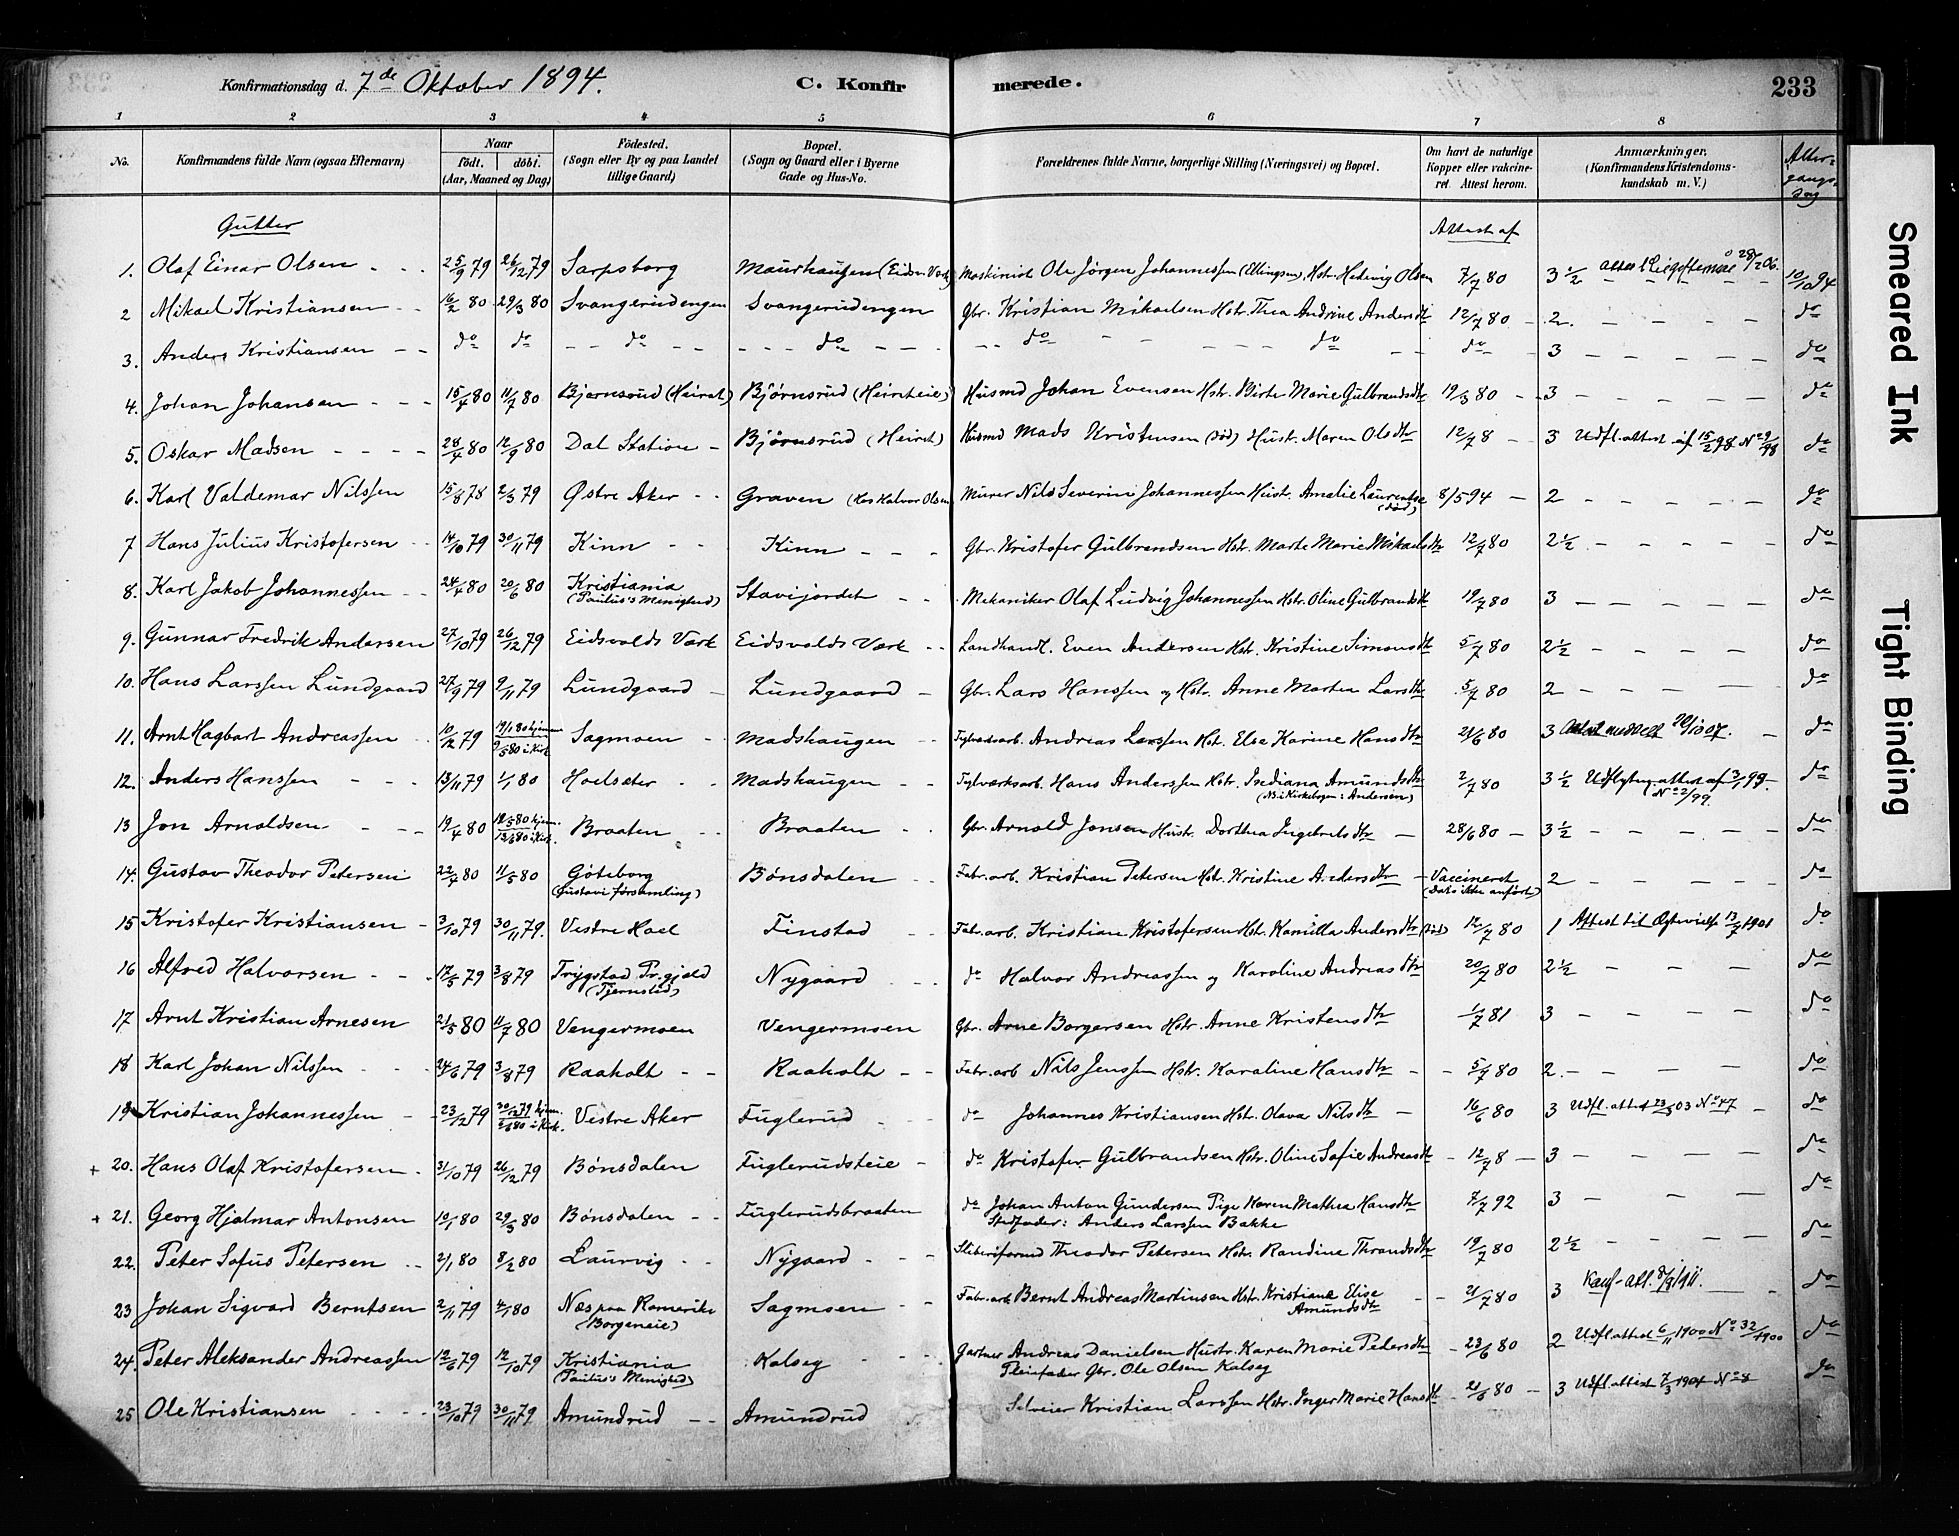 Konfirmationsdag d. 7de Oktober 1894. C. Konfirmerede. 233
1 2 3 4 5 6 7 8
No. Konfirmandens fulde Navn (ogsaa Efternavn) Naar födt. döbt. (Aar, Maaned og Dag) Födested. (Sogn eller By og paa Landet tillige Gaard) Bopæl. (Sogn og Gaard eller i Byerne Gade og Hus-No. Forældrenes fulde Navne, borgerlige Stilling (Næringsvei) og Bopæl. Om havt de naturlige Kopper eller vakcineret. Attest herom. Anmærkninger. (Konfirmandens Kristendomskundskab m. V.) Altergangsdag
Gutter Attest af
1. Olaf Einar Olsen 25/9 79 26/12 79 Sarpsborg Maurhaugen (Eidsv. Værk) Maskinist Ole Jörgen Johannessen (Ellingsen) Hstr. Hedevig Olsen 7/7 80 3 1/2 10/10 94
2 Mikael Kristiansen 16/2 80 29/3 80 Svangerudengen Svangerudengen Gbr. Kristian Mikaelsen Hstr. Thea Andrine Andersdtr 12/7 80 2. do
3. Anders Kristiansen do do do do do do do 3 do
4. Johan Johansen 15/4 80 11/7 80 Bjørnsrud (Heirat) Bjørnsrud (Heirateie) Husmd Johan Evensen Hstr. Birte Marie Gulbrandsdtr 19/3 80 3 do
5. Oskar Madsen 28/4 80 12/9 80 Dal Station Bjørnsrud (Heirat) Husmd Mads Kristensen (död) Hust. Maren Olsdtr 12/7 8 3 Udfl.attest af 15/2 98 No 29/98 do
6. Karl Valdemar Nilssen 15/8 78 2/3 79 Østre Aker Graven (Hos Halvor Olsen Murer Nils Severin Johannessen Hustr. Amalie Laurentse (død) 8/5 94 2 do
7 Hans Julius Kristofersen 14/10 79 30/11 79 Kinn Kinn Gbr. Kristofer Gulbrandsen Hstr. Marte Marie Mikaelsdtr 12/7 80 2 1/2 do
8. Karl Jakob Johannessen 24/4 80 20/6 80 Kristiania (Paulus's Menighed) Stavijordet Mekaniker Olaf Ludvig Johannessen Hstr. Oline Gulbrandsdtr 19/7 80 3 do
9. Gunnar Fredrik Andersen 27/10 79 26/12 79 Eidsvolds Værk Eidsvolds Værk Landhandl. Even Andersen Hstr. Kristine Simensdtr 5/7 80 2 1/2 do
10. Hans Larssen Lundgaard 27/9 79 9/11 79 Lundgaard Lundgaard Gbr. Lars Hanssen og Hstr. Anne Martea Larsdtr 5/7 80 2 do
11. Arnt Hagbart Andreassen 10/12 79 19/1 80 hjemme 9/5 80 i Kirk. Sagmoen Madshaugen Andreas Larssen Hst. Else Karine Hansdtr 21/6 80 3 Attest meddelt 20/10 07. do
12. Anders Hanssen 13/11 79 1/1 80 Hoelseter Madshaugen Hans Anderssen Hstr. Isediana Amundsdtr (NB. i Kirkebogen: Andersen) 2/7 80 3 1/2 Udflytn.attest af 3/1 99. (No 2/99. do
13 Jon Arnoldsen 19/4 80 18/5 80 hjem. 13/6 80 i Kirk. Braaten Braaten Gbr. Arnold Jonsen Hustr. Dorthea Ingebretsdtr 28/6 80 3 1/2 do
14. Gustav Theodor Petersen 22/4 80 11/5 80 Göteborg (Gustavi församling) Bönsdalen Fabr.arb. Kristian Petersen Hstr. Kristine Andersdtr Vaccineret (Dato ikke anført) 2 do
15 Kristofer Kristiansen 3/10 79 30/11 79. Vestre Hoel Finstad Fabr.arb. Kristian Kristofersen Hst. Kamilla Andersdtr (död) 12/7 80 1 Attest til Ægtevielse 13/7 1901 do
16 Alfred Halvorsen 17/5 79 3/8 79 Trygstad Pr.gjeld (Tjernsted) Nygaard do Halvor Andreassen og Karoline Andreasdtr 20/7 80 2 1/2 do
17 Arnt Kristian Arnesen 21/5 80 11/7 80 Vengermoen Vengermoen Gbr. Arne Borgersen Hstr. Anne Kristensdtr 1/7 81 3 do
18 Karl Johan Nilssen 24/6 79 3/8 79 Raaholt Raaholt Fabr.arb Nils Jenssen Hstr. Karoline Hansdtr 5/7 80 2. do
19 Kristian Johannessen 23/12 79 30/12 79 hjem. i Kirk. Vestre Aker Fuglerud do Johannes Kristiansen Hstr. Olava Nilsdtr 16/6 80 3 Udfl.attest 23/5 03 No 47 do
+ 20. Hans Olaf Kristofersen 31/10 79 26/12 79 Bönsdalen Fuglerudsteie do Kristofer Gulbrandsen Hstr. Oline Sofie Andreasdtr 12/7 8 3 do
+ 21. Georg Hjalmar Antonsen 10/1 80 29/3 80 Bönsdalen Fuglerudsbraaten do Johan Anton Gundersen Pige Karen Mathea Hansdtr Stedfader: Anders Larssen Bakke 7/7 92 3 do
22. Peter Sofus Petersen 2/1 80 8/2 80 Laurvig Nygaard Theodor Petersen Hstr. Randine Thrandsdtr 19/7 80 2 1/2 do
23 Johan Sigvard Berntsen 2/11 79 4/1 80 Næs paa Romerike (Borgeneie) Sagmoen Fabr.arb Bernt Andreas Martinsen Hstr. Kristiane Elise Amundsdtr 21/7 80 3 Konf-att. 8/9 11. do
24. Peter Aleksander Andreassen 12/6 79 12/10 79 Kristiania (Paulus's Menighed) Kalseg Gartner Andreas Danielsen Hustr. Karen Marie Pedersdtr Pleiefader Gbr. Ole Olsen Kalseg 23/6 80 2 Udfl.attest 6/11 1900 No 32/1900 do
25 Ole Kristiansen 23/10 79 30/11 79. Amundrud Amundrud Selveier Kristian Larssen Hstr. Inger Marie Hansdtr 21/6 80 3 Udfl.attest 7/3 1904 No 8 do
Smeared Ink
Tight Binding